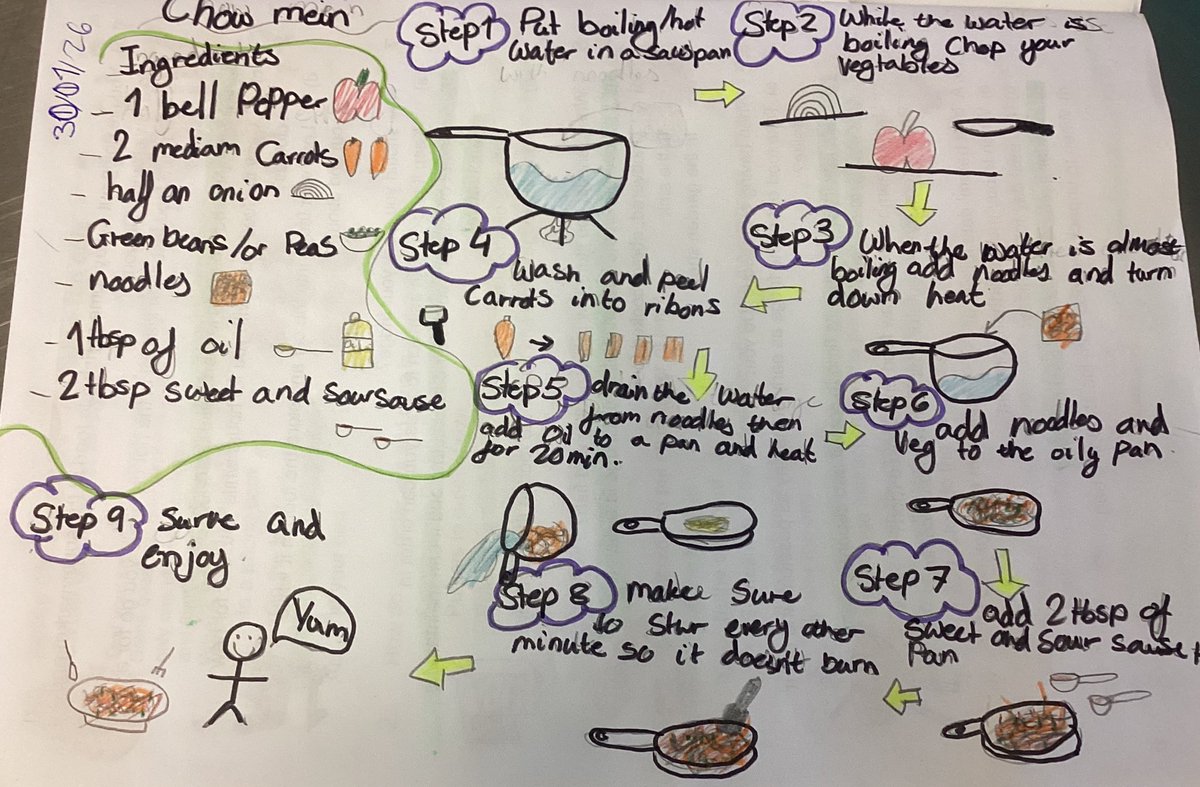 Chow mein
30/01/26
Ingredients
- 1 bell Pepper
- 2 mediam Carrots
- half an onion
- Green beans/or Peas
- noodles
- 1 tbsp of oil
- 2 tbsp sweet and soursause
Step 1
Put boiling/hot
water in a sauspan
Step 2
While the water is
boiling Chop your
vegtables
Step 3
When the water is almost
boiling add noodles and turn
down heat
Step 4
Wash and peel
Carrots into ribons
Step 5
drain the water
from noodles then
add oil to a pan and heat
for 20min..
Step 6
add noodles and
veg to the oily pan.
Step 7
add 2 tbsp of
sweet and sour sause t
Pan
Step 8
makee Sure
to Stur every other
minute so it doesn't burn
Step 9
Surve and
enjoy
Yum